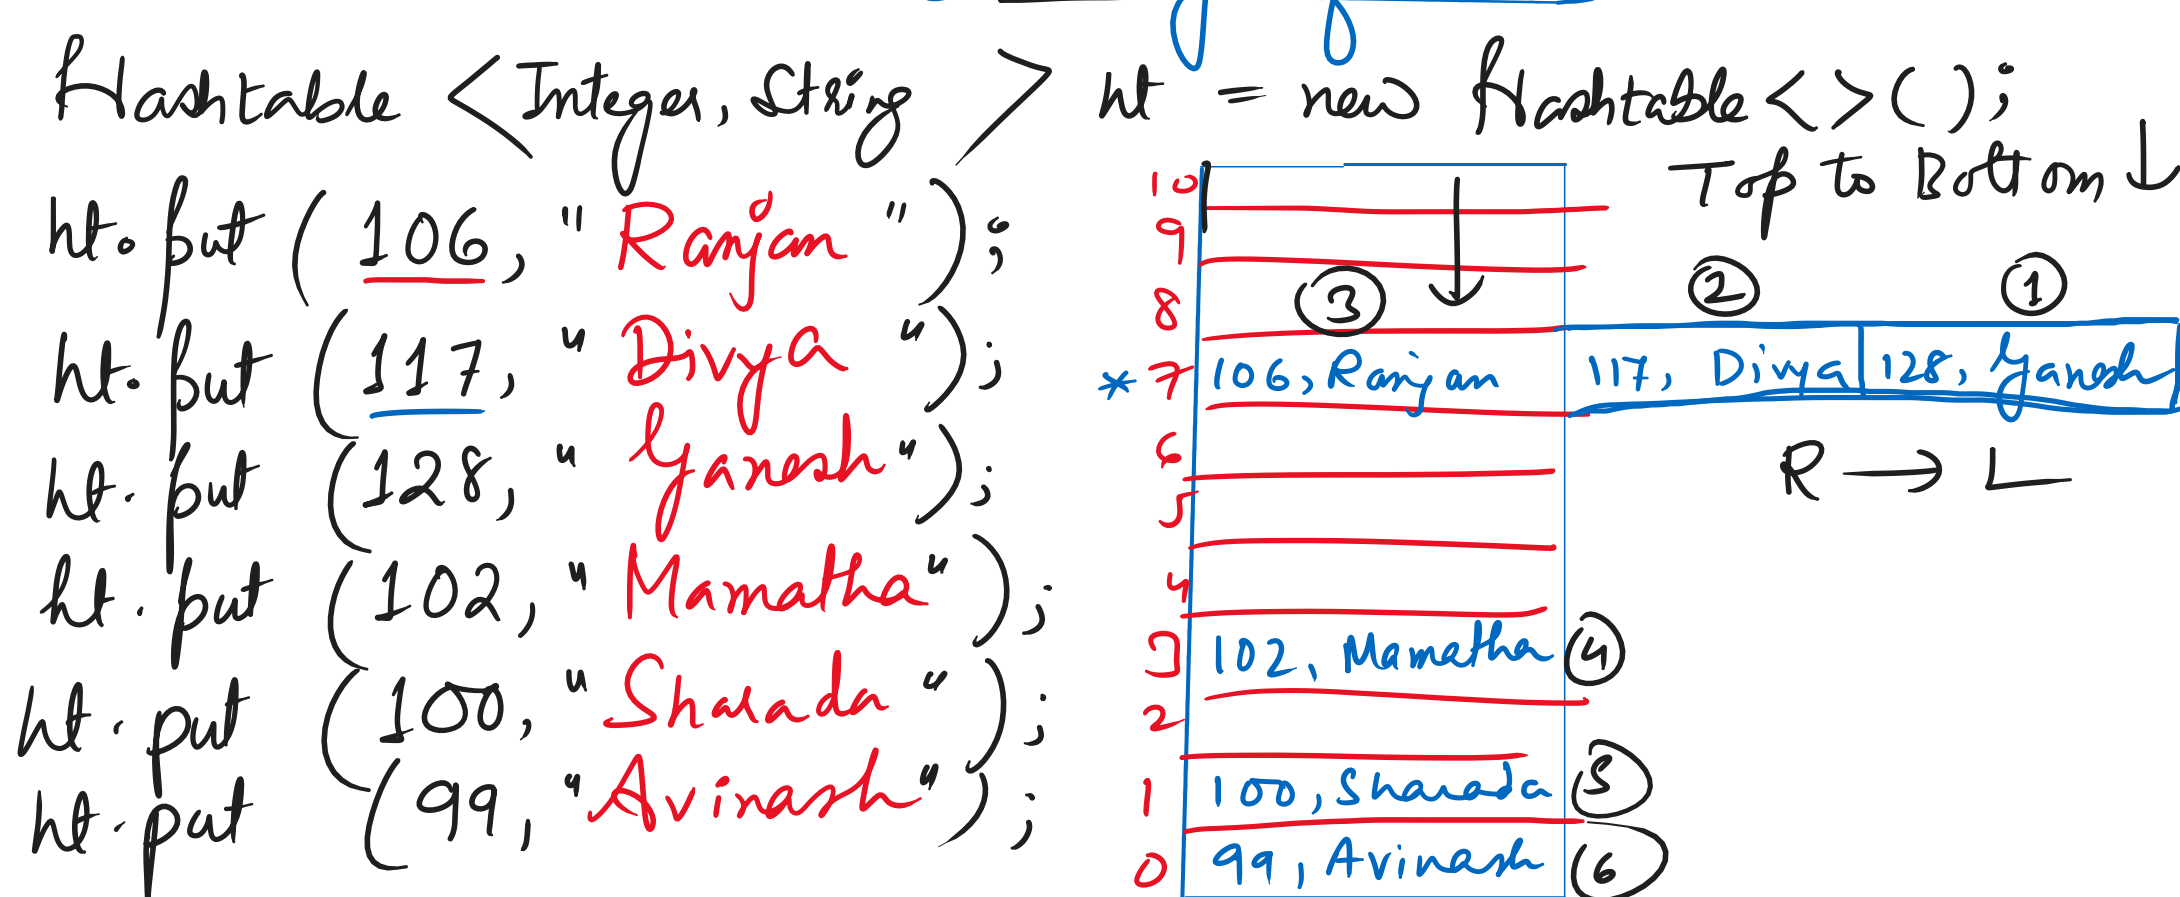 Hashtable <Integer, String> ht = new Hashtable<>();
Top to Bottom ↓
ht.put (106, "Ranjan");
ht.put (117, "Divya");
ht.put (128, "Ganesh");
ht.put (102, "Mamatha");
ht.put (100, "Sharada");
ht.put (99, "Avinash");
10
9
8 ③ ② ①
* 7 106, Ranjan 117, Divya 128, Ganesh
R → L
6
5
4
3 102, Mamatha ④
2
1 100, Sharada ⑤
0 99, Avinash ⑥